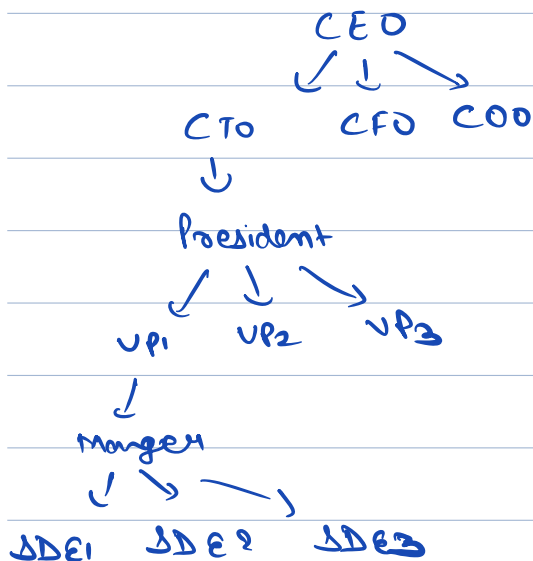 CEO
CTO CFO COO
President
VP1 VP2 VP3
Manger
SDE1 SDE2 SDE3